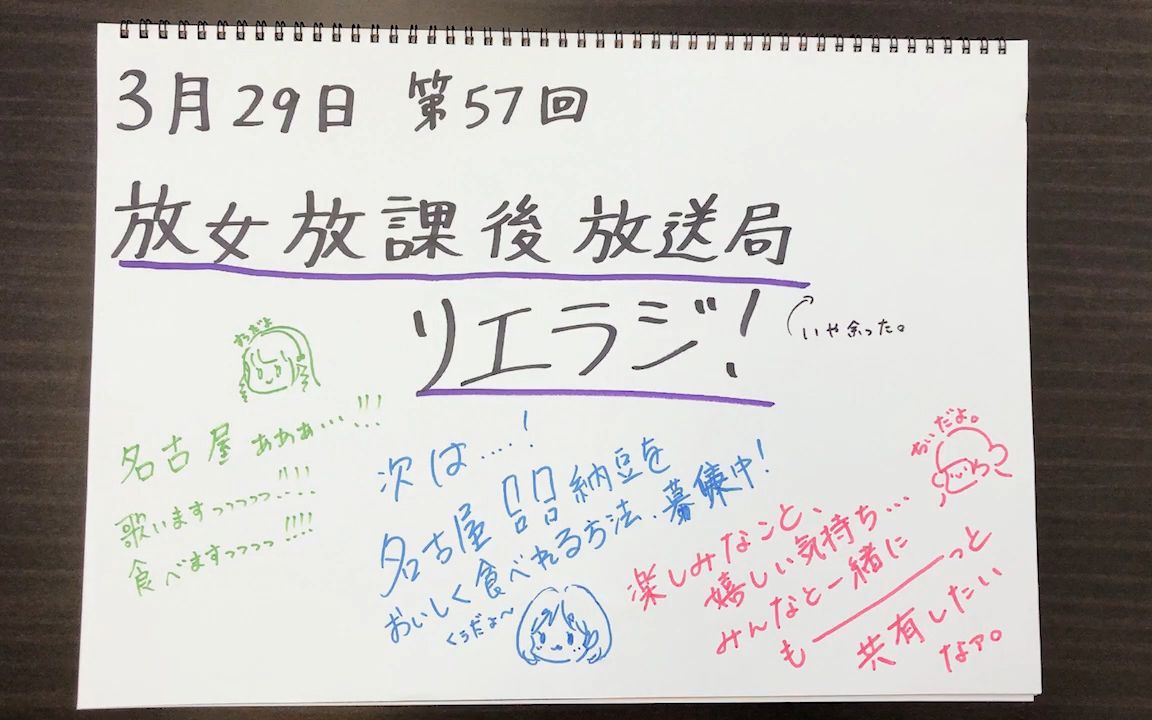 3月29日 第57回
放女放課後放送局
リエラジ!
いや余った。
名古屋ぁぁぁ…!!!
歌いますっっっっ…!!!
食べますっっっっ!!!!
次は……!
名古屋!!
納豆を
おいしく食べれる方法、募集中!
くぅだよ〜
ちぃだよ。
楽しみなこと、
嬉しい気持ち…
みんなと一緒に
も――――っと
共有したい
なァ。